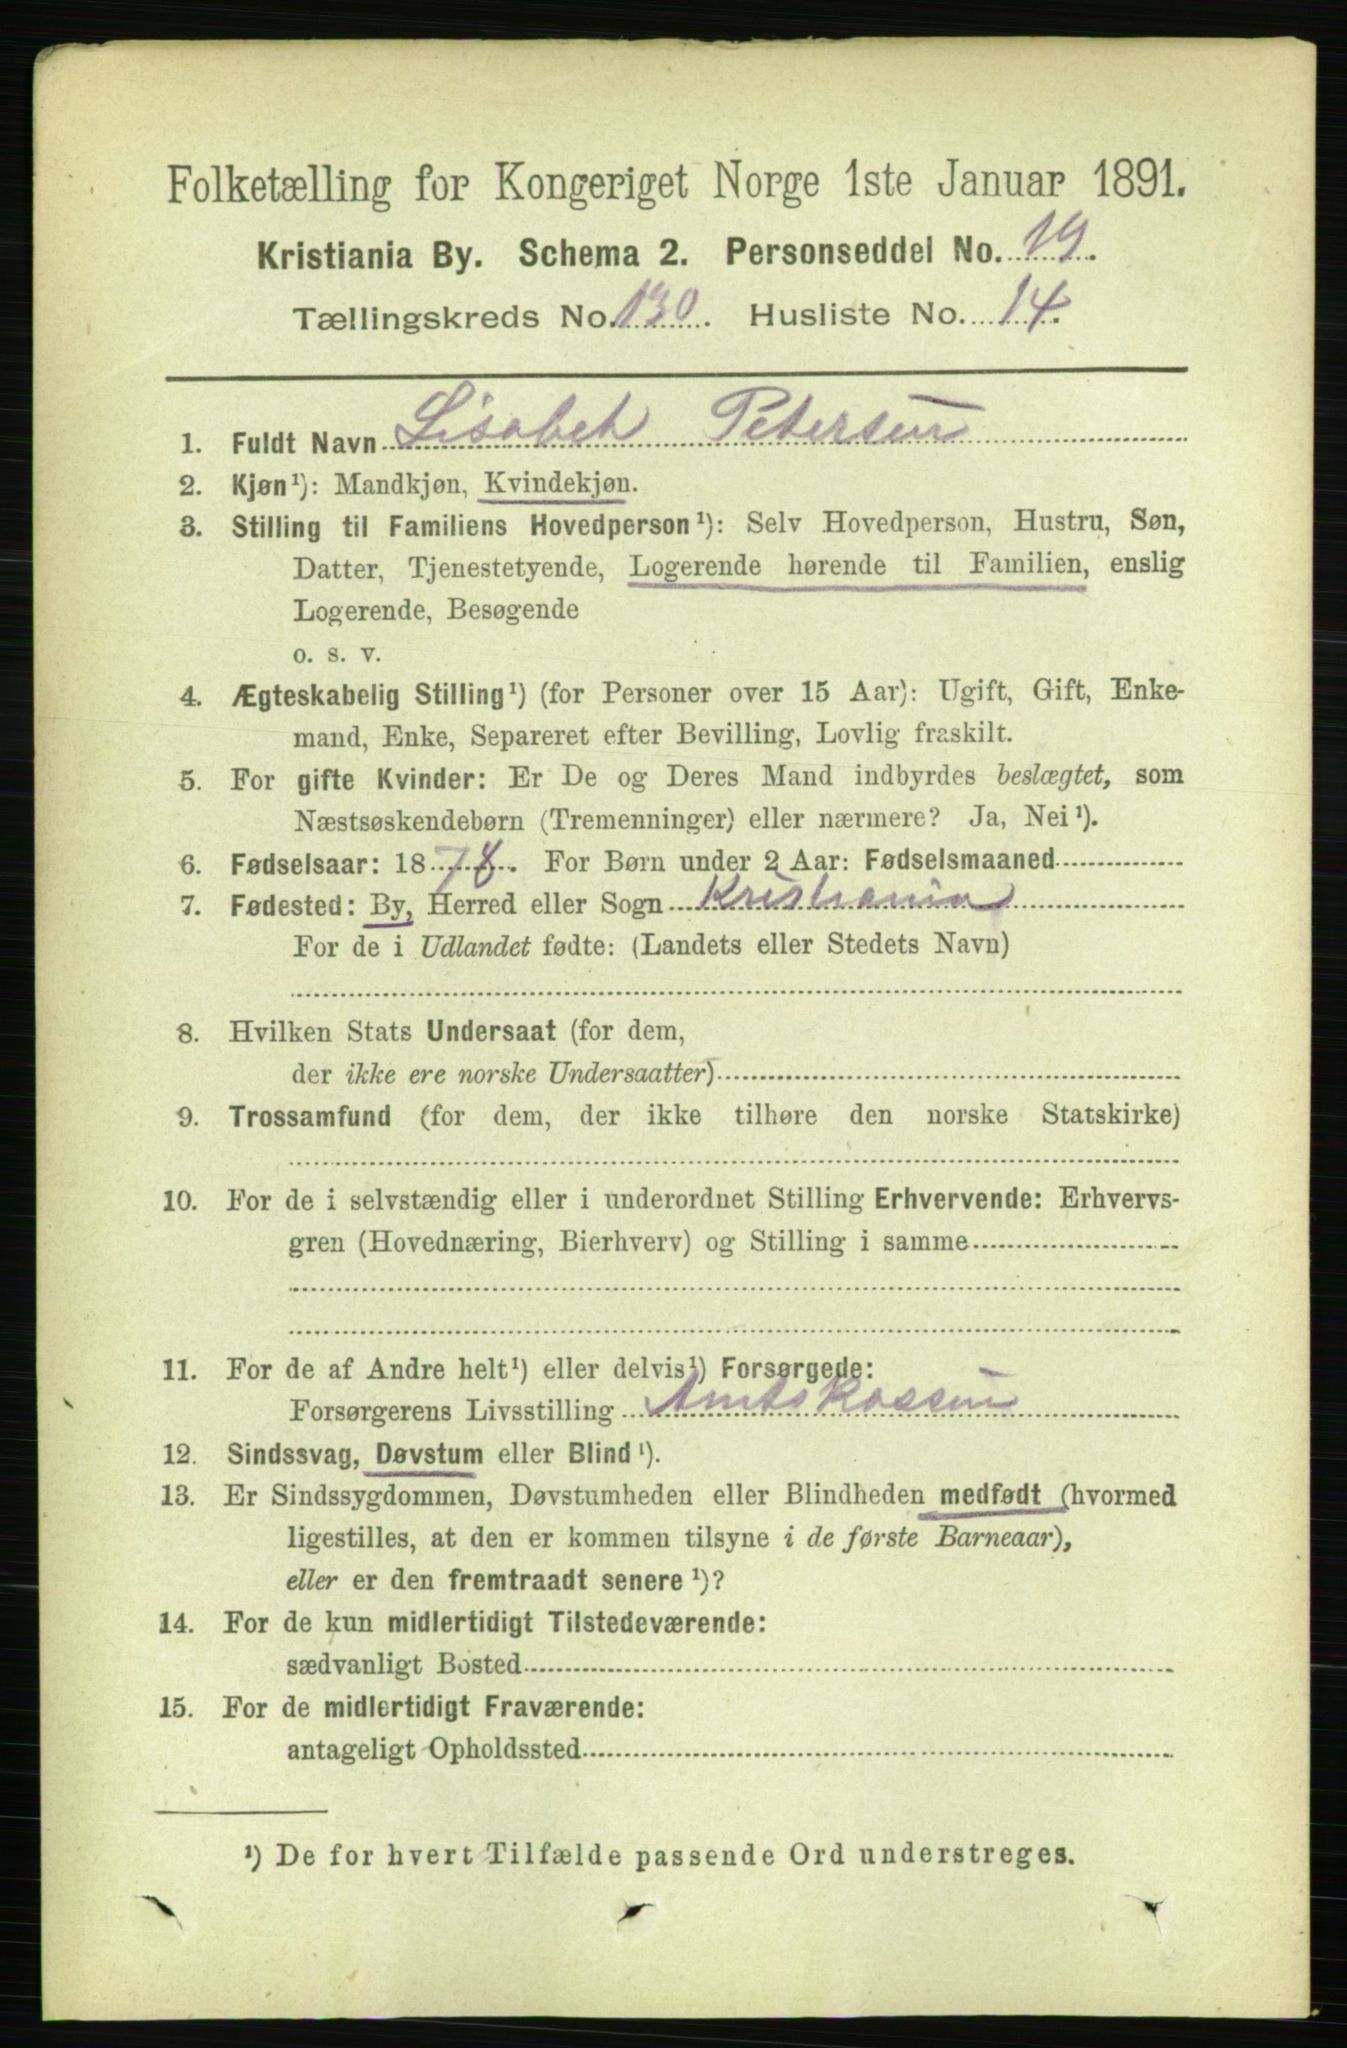 Folketælling for Kongeriget Norge 1ste Januar 1891.
Kristiania By. Schema 2. Personseddel No. 19.
Tællingskreds No. 130. Husliste No. 14.
1. Fuldt Navn Lisabeth Petersen
2. Kjøn¹): Mandkjøn, Kvindekjøn.
3. Stilling til Familiens Hovedperson¹): Selv Hovedperson, Hustru, Søn,
Datter, Tjenestetyende, Logerende hørende til Familien, enslig
Logerende, Besøgende
o. s. v.
4. Ægteskabelig Stilling¹) (for Personer over 15 Aar): Ugift, Gift, Enke-
mand, Enke, Separeret efter Bevilling, Lovlig fraskilt.
5. For gifte Kvinder: Er De og Deres Mand indbyrdes beslægtet, som
Næstsøskendebørn (Tremenninger) eller nærmere? Ja, Nei¹).
6. Fødselsaar: 1878. For Børn under 2 Aar: Fødselsmaaned
7. Fødested: By, Herred eller Sogn Kristiania
For de i Udlandet fødte: (Landets eller Stedets Navn)
8. Hvilken Stats Undersaat (for dem,
der ikke ere norske Undersaatter)
9. Trossamfund (for dem, der ikke tilhøre den norske Statskirke)
10. For de i selvstændig eller i underordnet Stilling Erhvervende: Erhvervs-
gren (Hovednæring, Bierhverv) og Stilling i samme
11. For de af Andre helt¹) eller delvis¹) Forsørgede:
Forsørgerens Livsstilling Amtskassen
12. Sindssvag, Døvstum eller Blind¹).
13. Er Sindssygdommen, Døvstumheden eller Blindheden medfødt (hvormed
ligestilles, at den er kommen tilsyne i de første Barneaar),
eller er den fremtraadt senere¹)?
14. For de kun midlertidigt Tilstedeværende:
sædvanligt Bosted
15. For de midlertidigt Fraværende:
antageligt Opholdssted
¹) De for hvert Tilfælde passende Ord understreges.